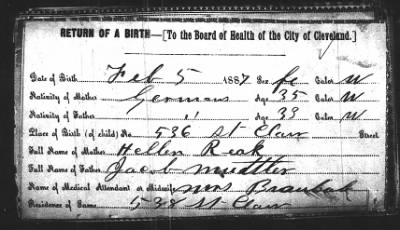 RETURN OF A BIRTH—[To the Board of Health of the City of Cleveland.]
Date of Birth Feb 5 1887 Sex fe Color W
Nativity of Mother Germans Age 35 Color W
Nativity of Father " Age 39 Color W
Place of Birth (of child) No. 536 St Clair Street
Full Name of Mother Hellen Reak
Full Name of Father Jacob
Name of Medical Attendant or Midwife Mrs
Residence of Same 538 St Clair